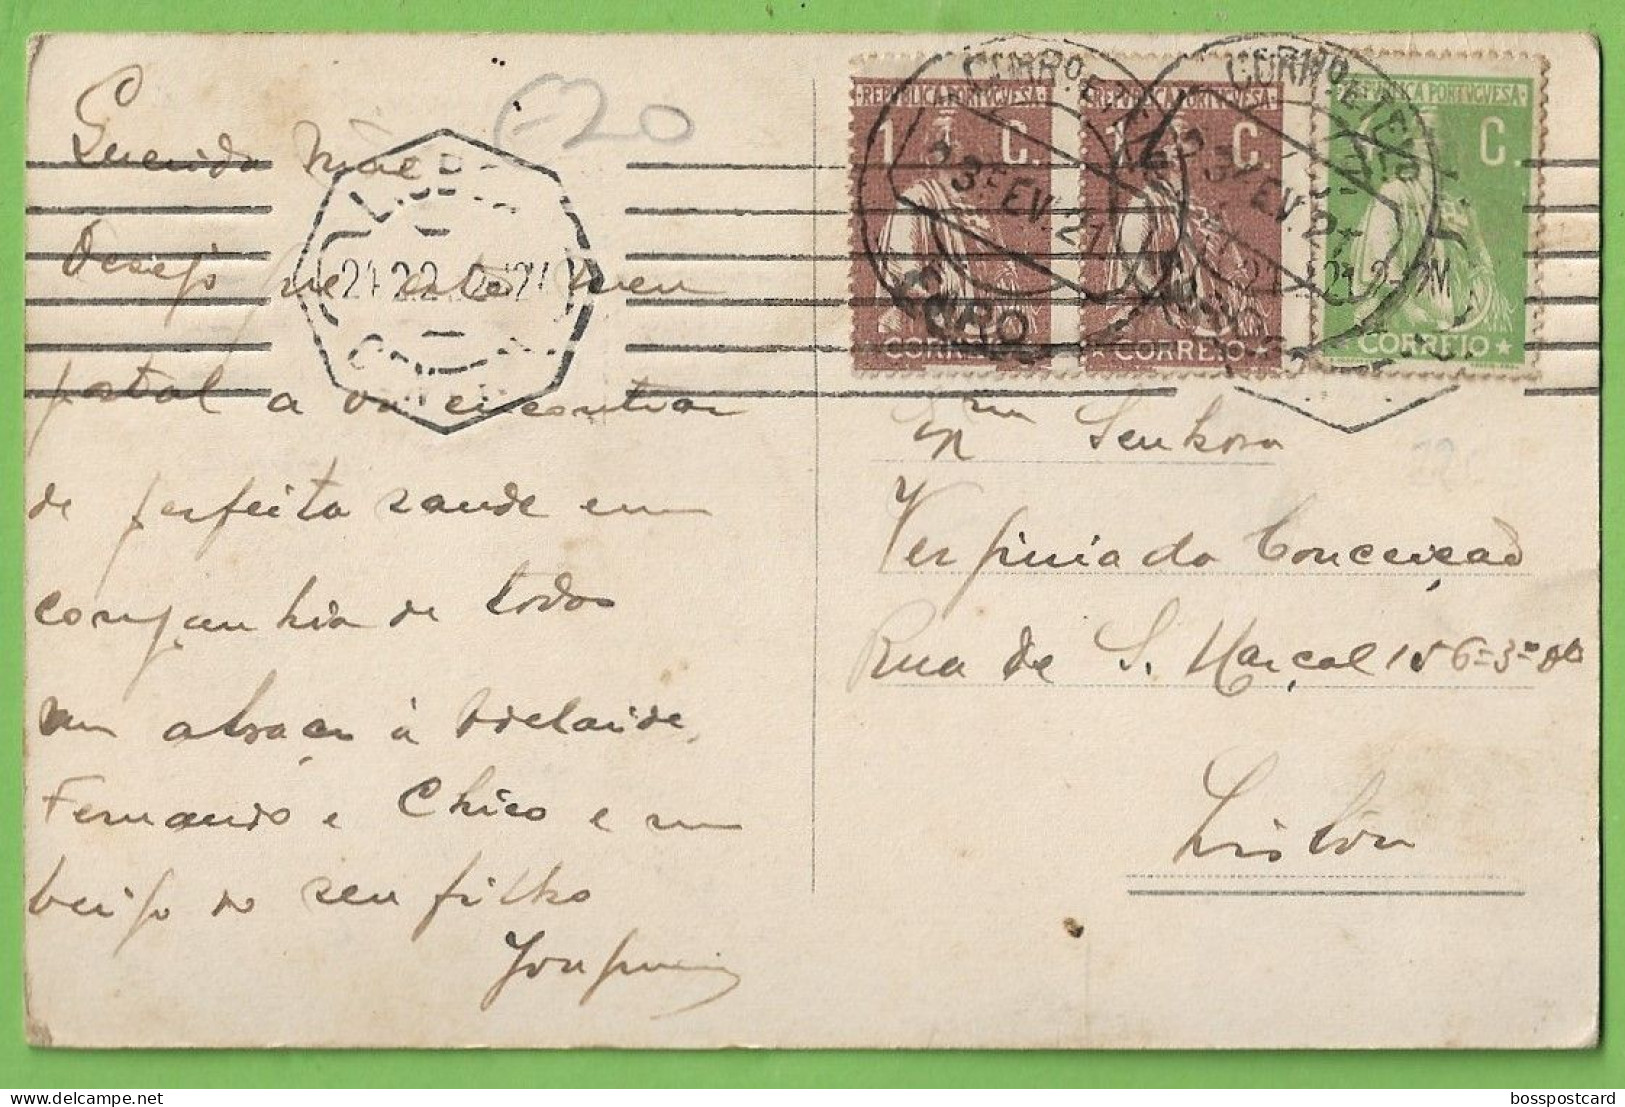 Querida Mãe
Desejo que este meu
postal a vá encontrar
de perfeita saude em
companhia de todos
um abraço á Adelaide,
Fernando e Chico e um
beijo do seu filho
€20
REPUBLICA PORTUGUESA
1 C.
CORREIO
REPUBLICA PORTUGUESA
1 C.
CORREIO
REPUBLICA PORTUGUESA
C.
CORREIO
23 FEV. 21
23 FEV. 21
Exma Senhora
Verginia da Conceição
Rua de S. Marçal 156=3º
Lisboa
bosspostcard